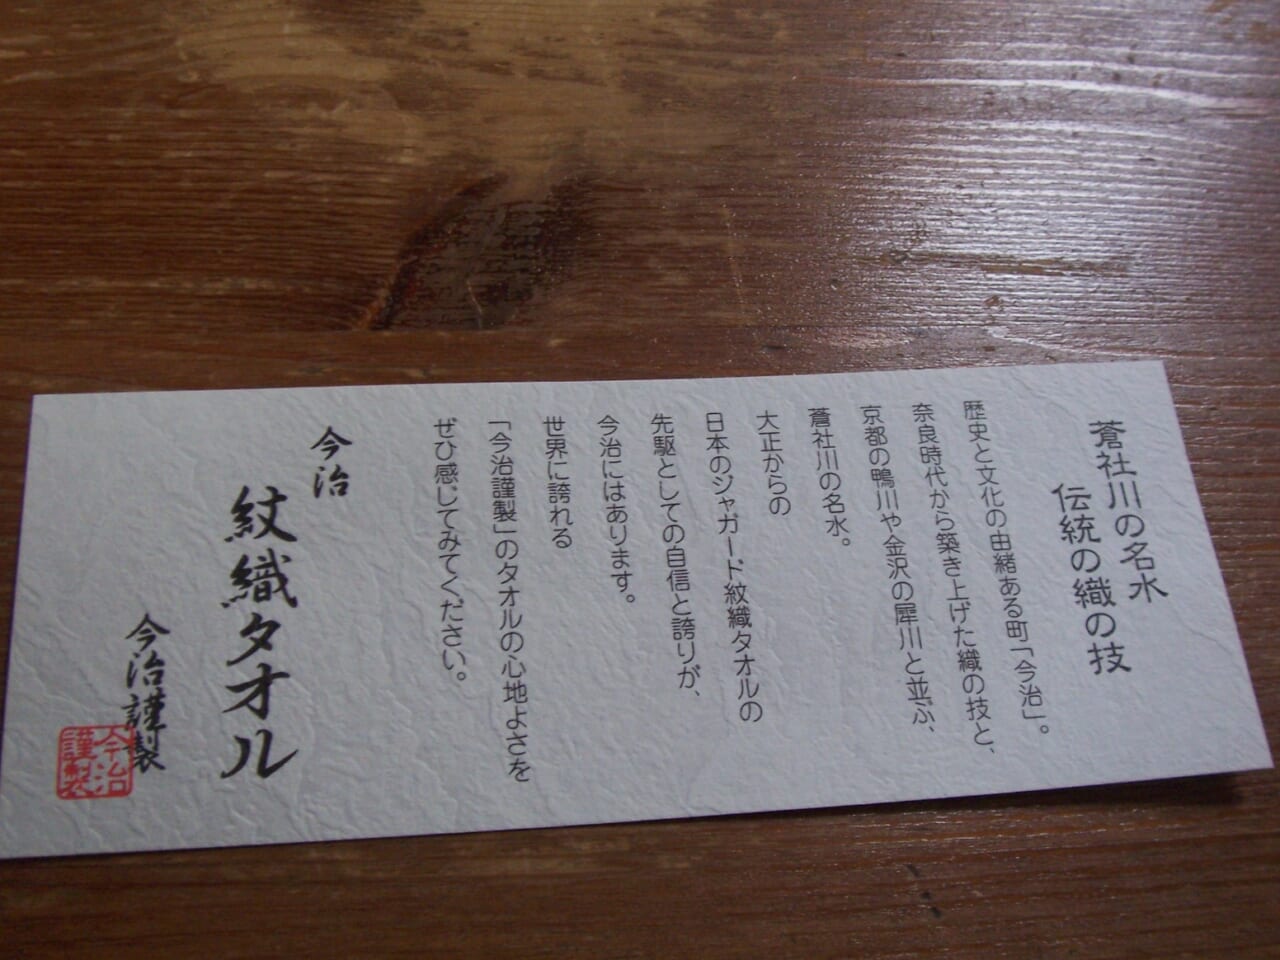 蒼社川の名水
伝統の織の技
歴史と文化の由緒ある町「今治」。
奈良時代から築き上げた織の技と、
京都の鴨川や金沢の犀川と並ぶ、
蒼社川の名水。
大正からの
日本のジャガード紋織タオルの
先駆としての自信と誇りが、
今治にはあります。
世界に誇れる
「今治謹製」のタオルの心地よさを
ぜひ感じてみてください。
今治
紋織タオル
今治謹製
今治
謹製